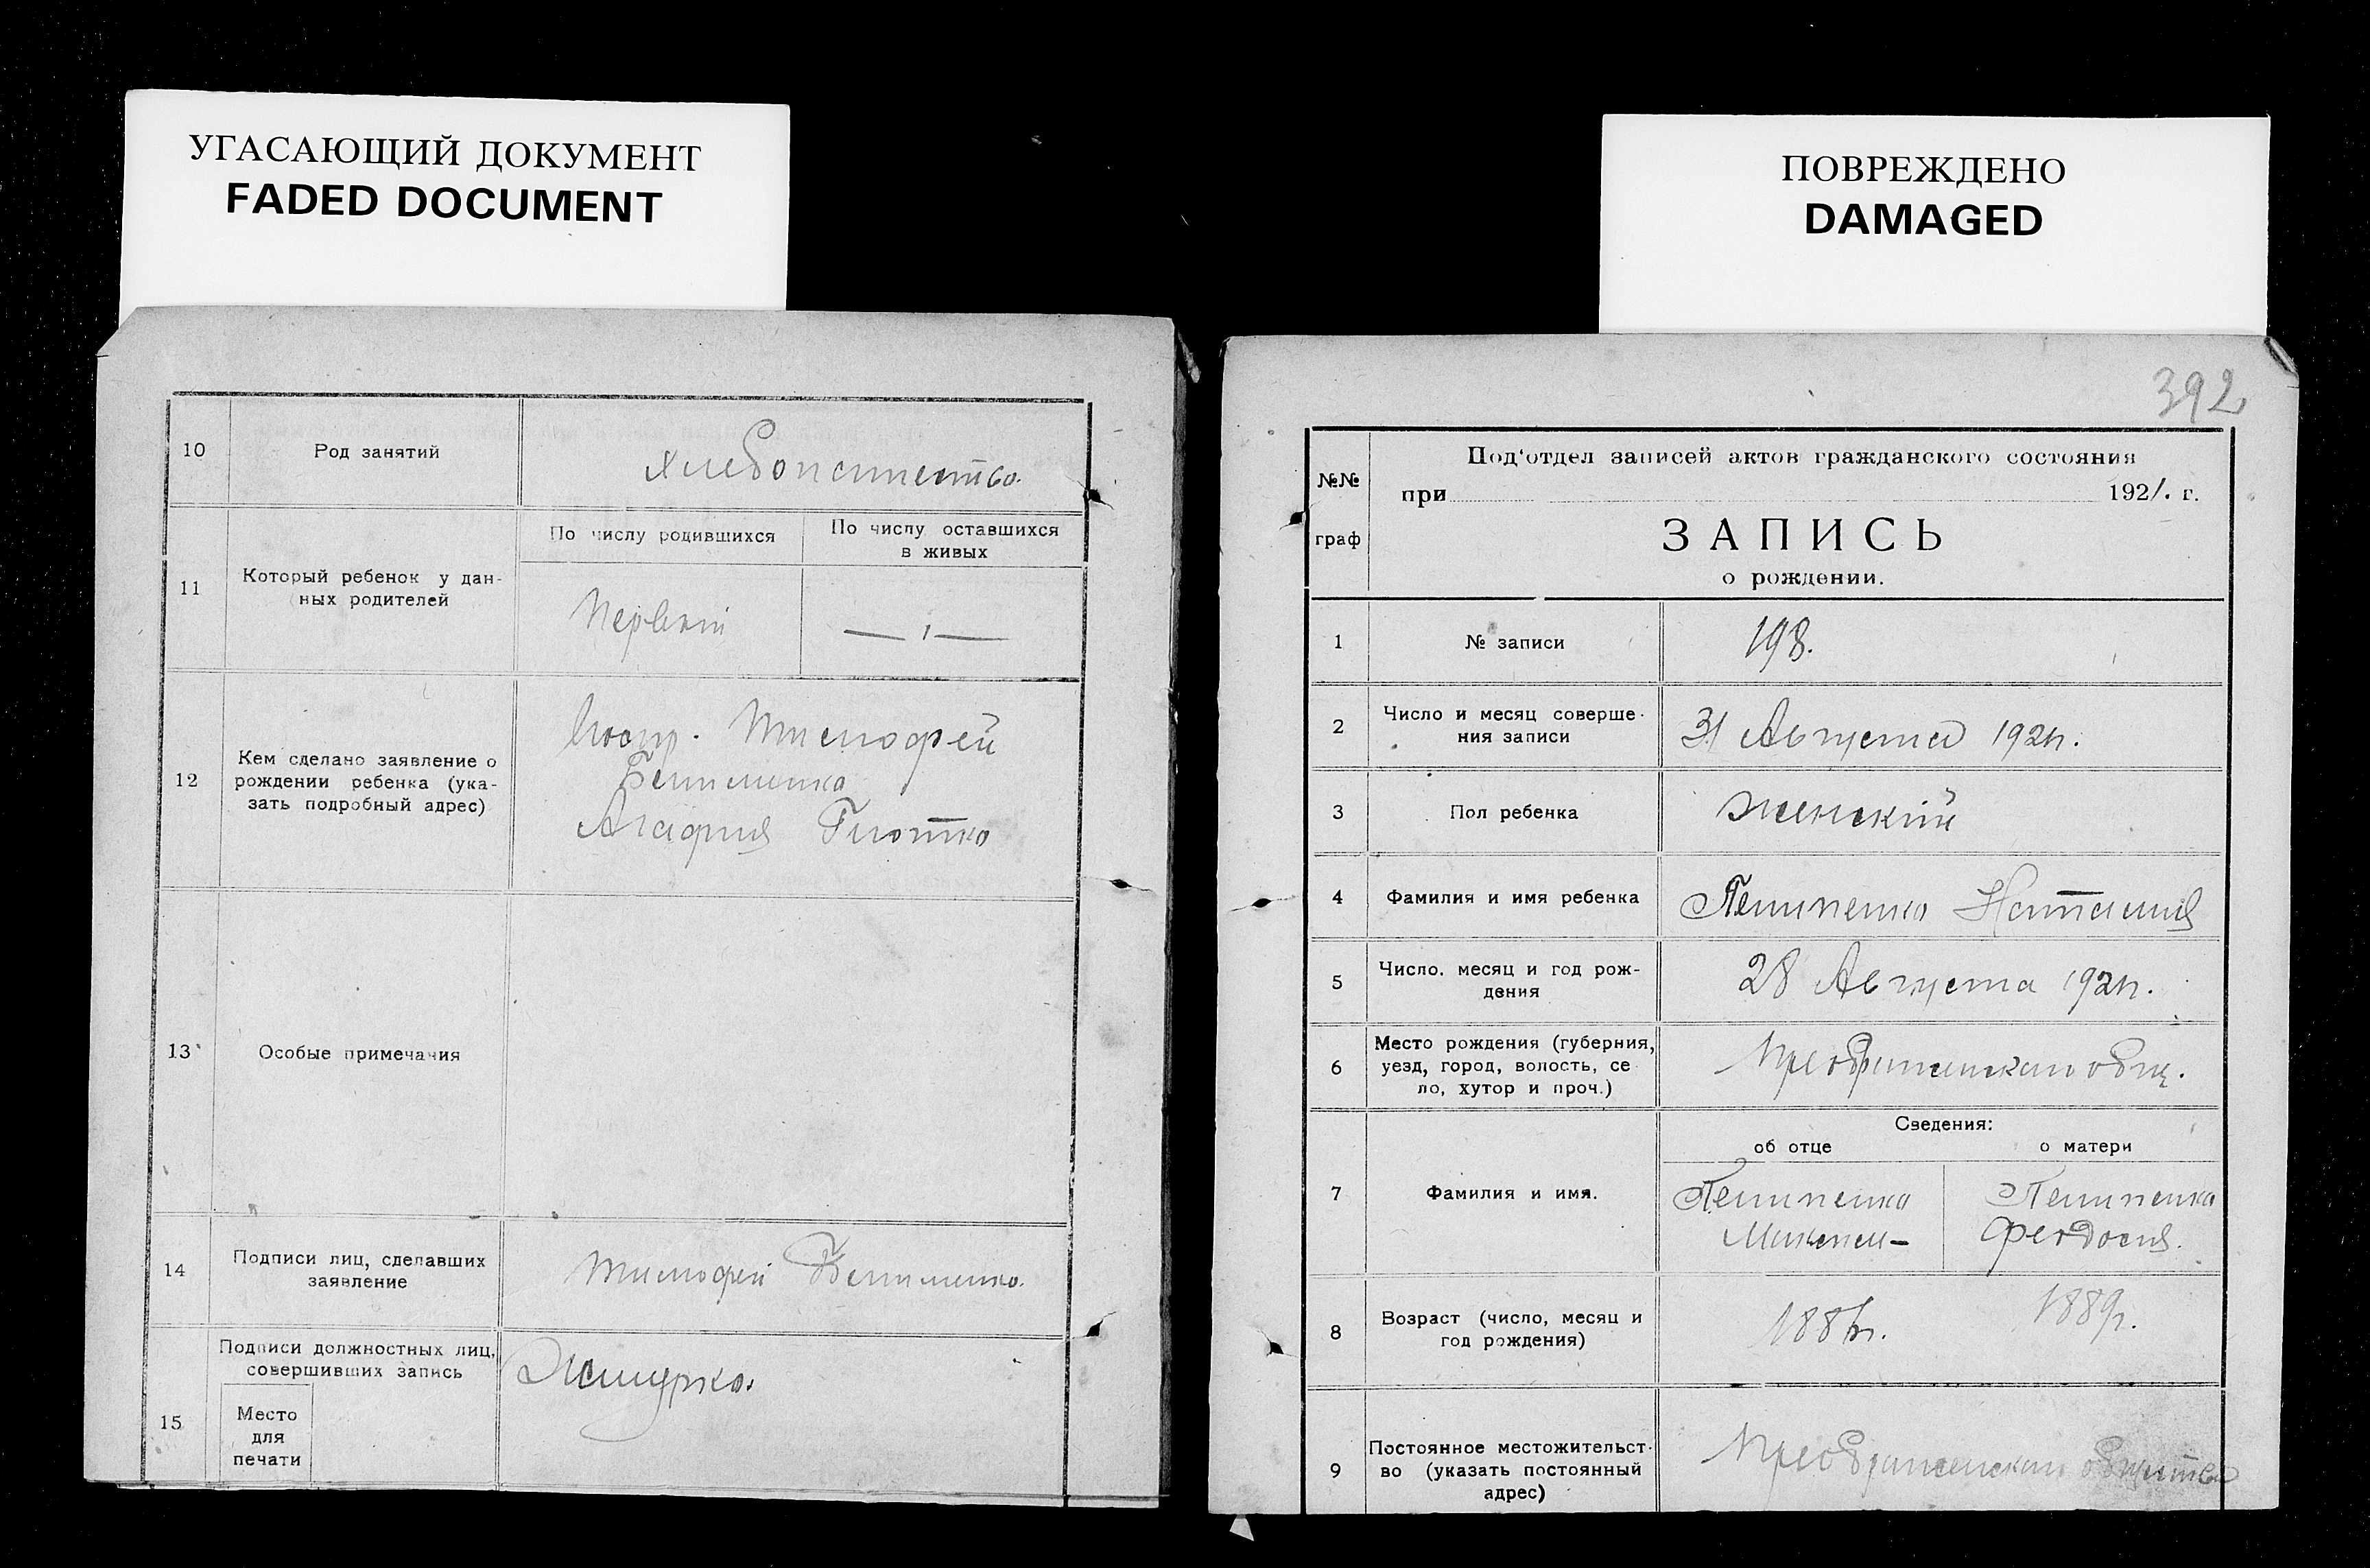 УГАСАЮЩИЙ ДОКУМЕНТ
FADED DOCUMENT
10
Род занятий
Хлебопашество.
11
Который ребенок у дан-
ных родителей
По числу родившихся
По числу оставшихся
в живых
Первый
12
Кем сделано заявление о
рождении ребенка (ука-
зать подробный адрес)
Тимофей
Агафия
13
Особые примечания
14
Подписи лиц, сделавших
заявление
Тимофей
Подписи должностных лиц,
совершивших запись
15
Место
для
печати
ПОВРЕЖДЕНО
DAMAGED
392
№№
граф
Под'отдел записей актов гражданского состояния
при 1921. г.
ЗАПИСЬ
о рождении.
1
№ записи
198.
2
Число и месяц соверше-
ния записи
31 Августа 1921г.
3
Пол ребенка
Женскій
4
Фамилия и имя ребенка
Наталия
5
Число. месяц и год рож-
дения
28 Августа 1921г.
6
Место рождения (губерния,
уезд, город, волость, се
ло, хутор и проч.)
общ.
Сведения:
об отце
о матери
7
Фамилия и имя.
Феодосия.
8
Возраст (число, месяц и
год рождения)
1889г.
9
Постоянное местожительст-
во (указать постоянный
адрес)
общества